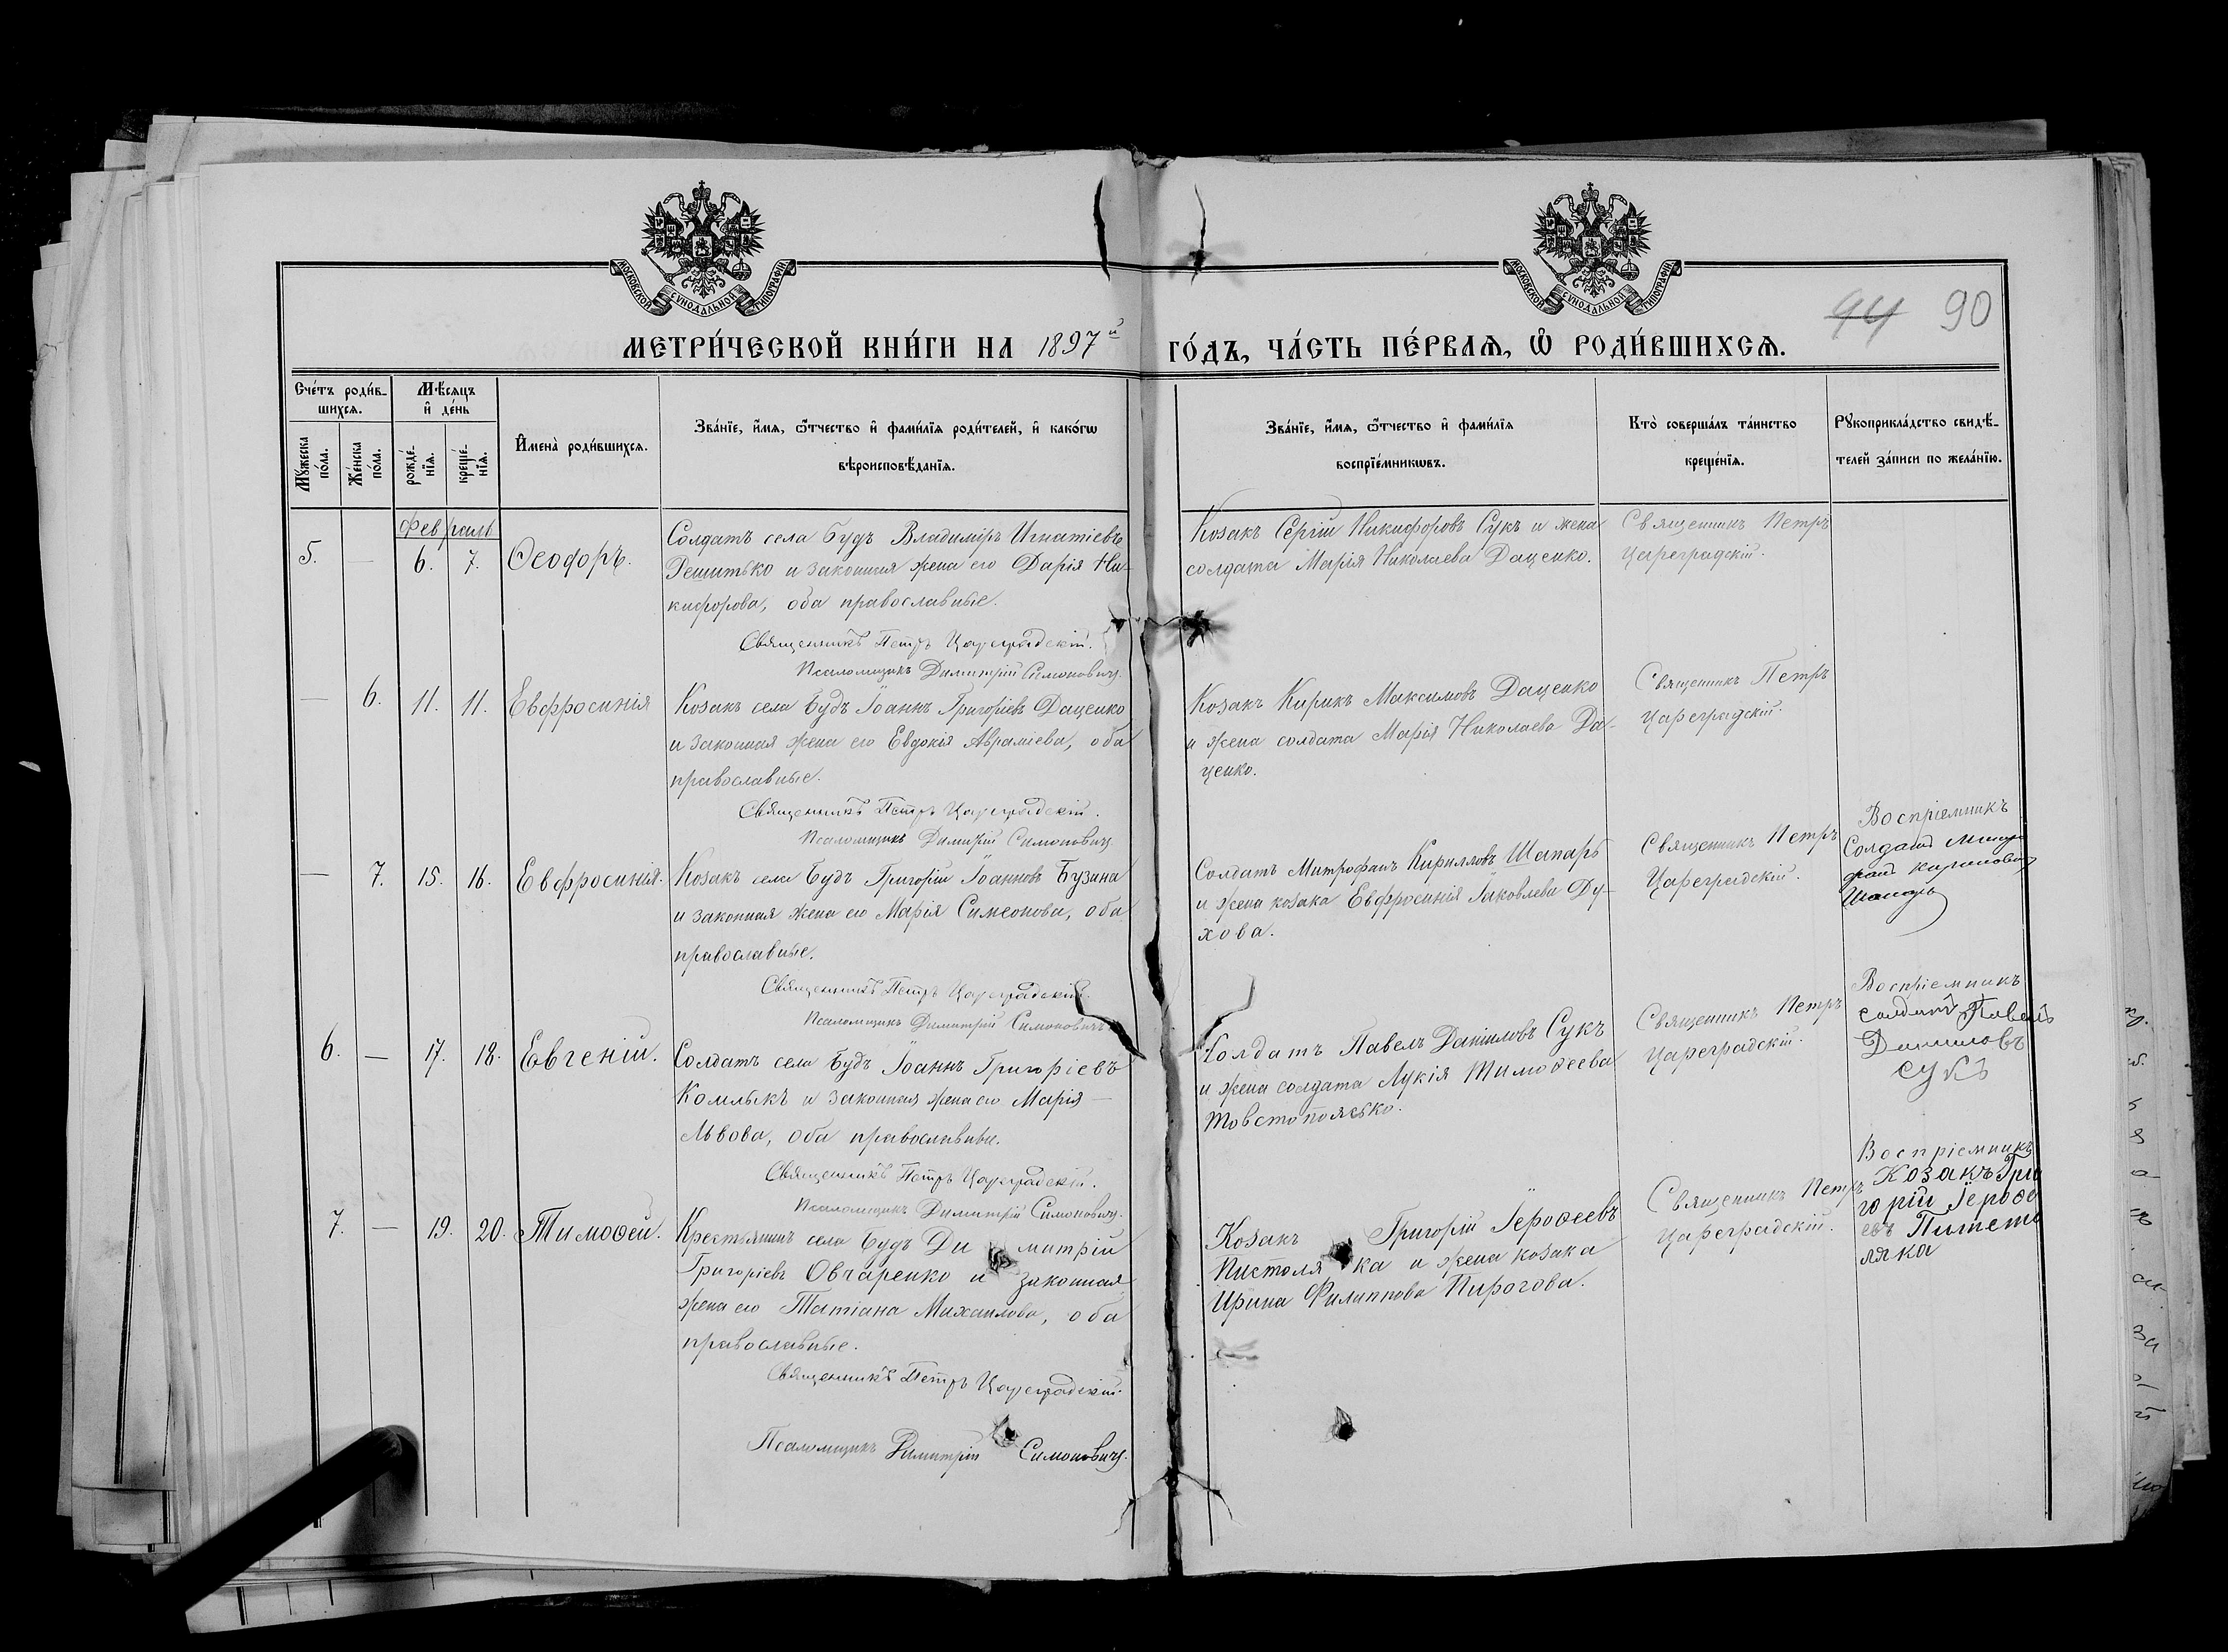 МОСКОВСКОЙ СѴНОДАЛЬНОЙ ТИПОГРАФІИ
МОСКОВСКОЙ СѴНОДАЛЬНОЙ ТИПОГРАФІИ
94 90
МЕТРИ́ЧЕСКОЙ КНИ́ГИ НА 1897й ГО́ДЪ, ЧА́СТЬ ПЕ́РВАѦ, Ѽ РОДИ́ВШИХСѦ.
Сче́тъ роди́в-
шихсѧ.
Мѣ́сѧцъ
и҆ де́нь
Мꙋ́жеска
по́ла.
Же́нска
по́ла.
рожде́-
нїѧ.
креще́-
нїѧ.
И҆мена̀ роди́вшихсѧ.
Зва́нїе, и҆́мѧ, ѻ҆́тчество и҆ фами́лїѧ роди́телей, и҆ како́гѡ
вѣроисповѣ́данїѧ.
Зва́нїе, и҆́мѧ, ѻ҆́тчество и҆ фами́лїѧ
воспрїе́мникѡвъ.
Кто̀ соверша́лъ та́инство
креще́нїѧ.
Рꙋкоприкла́дство свидѣ́-
телей за́писи по жела́нїю.
Февраль
5. — 6. 7. Ѳеодоръ.
Солдатъ села Будъ Владиміръ Игнатіевъ
Решитько и законная жена его Дарія Ни-
кифорова, оба православные.
Священникъ Петръ Цареградскій.
Псаломщикъ Димитрій Симоновичъ.
Козакъ Сергій Никифоровъ Сукъ и жена
солдата Марія Николаева Даценко.
Священникъ Петръ
Цареградскій.
— 6. 11. 11. Евфросинія
Козакъ села Будъ Іоаннъ Григоріевъ Даценко
и законная жена его Евдокія Авраміева, оба
православные.
Священникъ Петръ Цареградскій.
Псаломщикъ Димитрій Симоновичъ
Козакъ Кирикъ Максимовъ Даценко
и жена солдата Марія Николаева Да-
ценко.
Священникъ Петръ
Цареградскій.
— 7. 15. 16. Евфросинія.
Козакъ села Будъ Григорій Іоанновъ Бузина
и законная жена его Марія Симеонова, оба
православные.
Священникъ Петръ Цареградскій.
Псаломщикъ Димитрій Симоновичъ
Солдатъ Митрофанъ Кирилловъ Шапаръ
и жена козака Евфросинія Іаковлева Ду-
хова.
Священникъ Петръ
Цареградскій.
Воспріемникъ
Солдатъ
6. — 17. 18. Евгеній.
Солдатъ села Будъ Іоаннъ Григоріевъ
Комлыкъ и законная жена его Марія —
Львова, оба православные.
Священникъ Петръ Цареградскій.
Псаломщикъ Димитрій Симоновичъ.
Солдатъ Павелъ Даніиловъ Сукъ
и жена солдата Лукія Тимоѳеева
Товстоплясько.
Священникъ Петръ
Цареградскій.
Воспріемникъ
солдатъ Павелъ
Даниловъ
Сукъ
7. — 19. 20. Тимоѳей.
Крестьянинъ села Будъ Димитрій
Григоріевъ Овчаренко и законная
жена его Татіана Михаилова, оба
православные.
Священникъ Петръ Цареградскій.
Псаломщикъ Димитрій Симоновичъ.
Козакъ Григорій Іероѳеевъ
Пистоляка и жена козака
Ирина Филиппова Пирогова.
Священникъ Петръ
Цареградскій.
Воспріемникъ
Козакъ Гри
горій Іероѳе
евъ
ляка